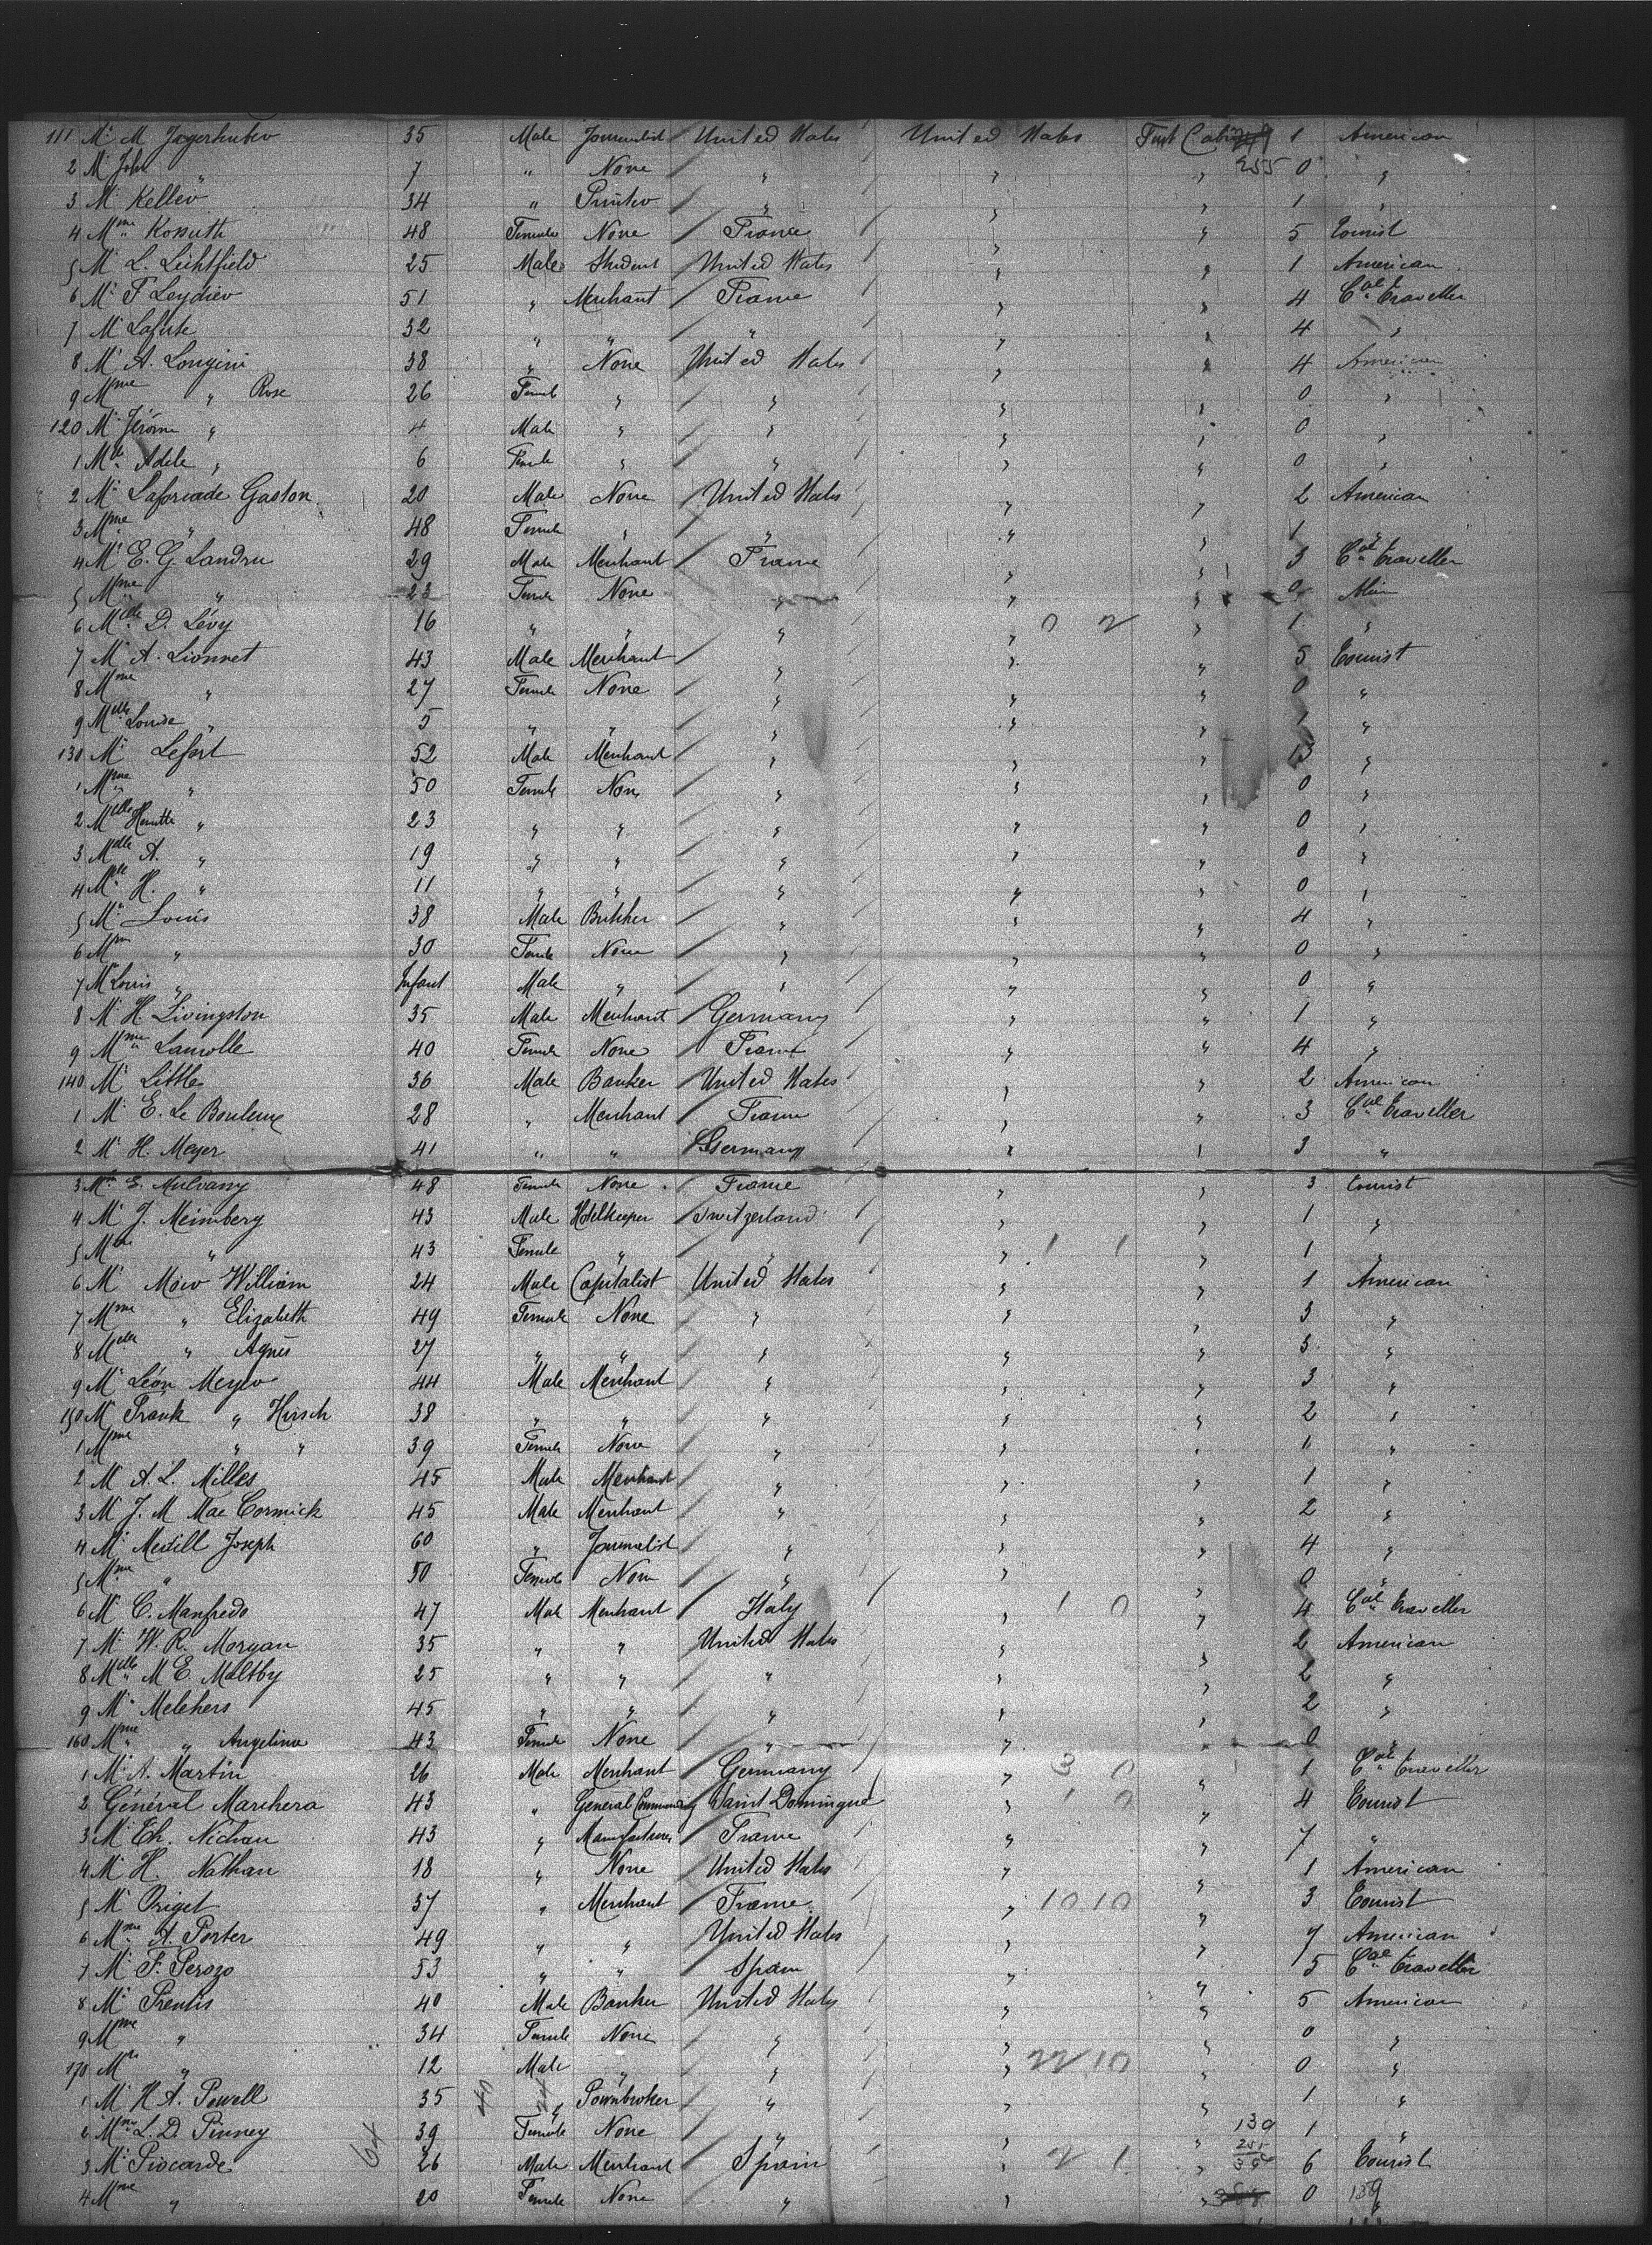 111 Mr M Jagerhuber 35 Male Journalist United States United States First Cabin 1 American
2 Mr John " 7 " None " " " 255 0 "
3 Mr Keller 34 " Printer " " " 1 "
4 Mme Kossuth 48 Female None France " " 5 Tourist
5 Mr L. Lichtfield 25 Male Student United States " " 1 American
6 Mr F Leydier 51 " Merchant France " " 4 Cal Traveller
7 Mr Lafute 32 " " " " " 4 "
8 Mr A. Longini 38 " None United States " " 4 American
9 Mme " Rose 26 Female " " " " 0 "
120 Mr Jérome " 4 Male " " " " 0 "
1 Mlle Adele " 6 Female " " " " 0 "
2 Mr Laforcade Gaston 20 Male None United States " " 2 American
3 Mme " 48 Female " " " " 1 "
4 Mr E. G. Landru 29 Male Merchant France " " 3 Cal Traveller
5 Mme " 23 Female None " " " 0 Alien
6 Melle D. Lévy 16 " " " " 0 2 " 1 "
7 Mr A. Lionnet 43 Male Merchant " " " 5 Tourist
8 Mme " 27 Female None " " " 0 "
9 Melle Louise " 5 " " " " " 1 "
130 Mr Lefort 52 Male Merchant " " " 13 "
1 Mme " 50 Female None " " " 0 "
2 Melle " 23 " " " " " 0 "
3 Melle A. " 19 " " " " " 0 "
4 Melle H. " 11 " " " " " 0 "
5 Mr Louis 38 Male Butcher " " " 4 "
6 Mme " 30 Female None " " " 0 "
7 Mr Louis " Infant Male " " " " 0 "
8 Mr H. Livingston 35 Male Merchant Germany " " 1 "
9 Mme Lamolle 40 Female None France " " 4 "
140 Mr Little 36 Male Banker United States " " 2 American
1 Mr E. Le Bouleux 28 " Merchant France " " 3 Cal Traveller
2 Mr H. Meyer 41 " " Germany " " 3 "
3 E. Mulvany 48 Female None France " " 3 Tourist
4 Mr J. Meimberg 43 Male Hotelkeeper Switzerland " " 1 "
5 Mme " 43 Female " " " 1 1 " 1 "
6 Mr Mow William 24 Male Capitalist United States " " 1 American
7 Mme " Elizabeth 49 Female None " " " 3 "
8 Melle " Agnes 27 " " " " " 3 "
9 Mr Léon Meyer 44 Male Merchant " " " 3 "
150 Mr Frank " Hirsch 38 " " " " " 2 "
1 Mme " " 39 Female None " " " 1 "
2 Mr A. L. Milles 45 Male Merchant " " " 1 "
3 Mr J. M Mac Cormick 45 Male Merchant " " " 2 "
4 Mr Medill Joseph 60 " Journalist " " " 4 "
5 Mme " 50 Female None " " " 0 "
6 Mr C. Manfredo 47 Male Merchant Italy " 1 0 " 4 Cal Traveller
7 Mr W. R. Morgan 35 " " United States " " 2 American
8 Melle M E. Maltby 25 " " " " " 2 "
9 Mr Melchers 45 " " " " " 2 "
160 Mme " Angelina 43 Female None " " " 0
1 Mr A. Martin 26 Male Merchant Germany " 3 0 " 1 Cal Traveller
2 Général Marchera 43 " General Saint Domingue " 1 0 " 4 Tourist
3 Mr Th. Nichau 43 " Manufacturer France " " 7 "
4 Mr H. Nathan 18 " None United States " " 1 American
5 Mr Origet 37 " Merchant France " 10 10 " 3 Tourist
6 Mme A. Porter 49 " " United States " " 7 American
7 Mr F. Perozo 53 " " Spain " " 5 Cal Traveller
8 Mr Prentis 40 Male Banker United States " " 5 American
9 Mme " 34 Female None " " " 0 "
170 Mr " 12 Male " " " 22 10 " 0 "
1 Mr H A. Powell 35 40 24 " Pownbroker " " " 1 "
2 Mme L. D. Pinney 64 39 Female None " " " 130 1 "
3 Mr Piocarde 26 Male Merchant Spain " 2 1 " 255 6 Tourist
4 Mme " 20 Female None " " " 0 139